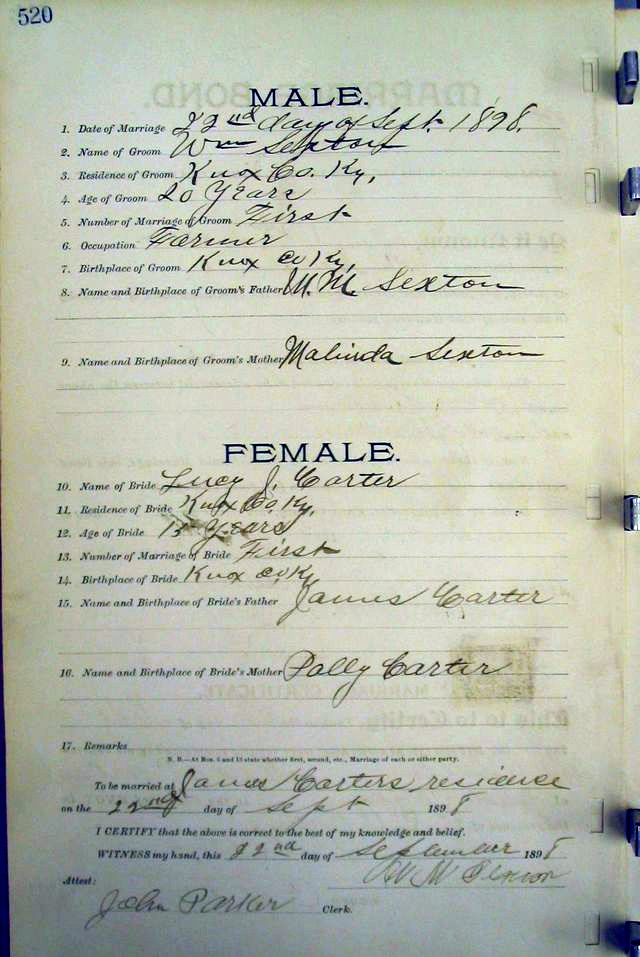 520
MALE.
1. Date of Marriage 22nd day of Sept. 1898.
2. Name of Groom Wm Sexton
3. Residence of Groom Knox Co. Ky,
4. Age of Groom 20 Years
5. Number of Marriage of Groom First
6. Occupation Farmer
7. Birthplace of Groom Knox Co Ky,
8. Name and Birthplace of Groom's Father M. M. Sexton
9. Name and Birthplace of Groom's Mother Malinda Sexton
FEMALE.
10. Name of Bride Lucy J. Carter
11. Residence of Bride Knox Co. Ky,
12. Age of Bride Years
13. Number of Marriage of Bride First
14. Birthplace of Bride Knox Co Ky
15. Name and Birthplace of Bride's Father James Carter
16. Name and Birthplace of Bride's Mother Polly Carter
17. Remarks
N. B.—At Nos. 5 and 13 state whether first, second, etc., Marriage of each or either party.
To be married at James Carters residence
on the 22nd day of Sept 1898
I CERTIFY that the above is correct to the best of my knowledge and belief.
WITNESS my hand, this 22nd day of September 1898
M Sexton
Attest:
John Parker Clerk.